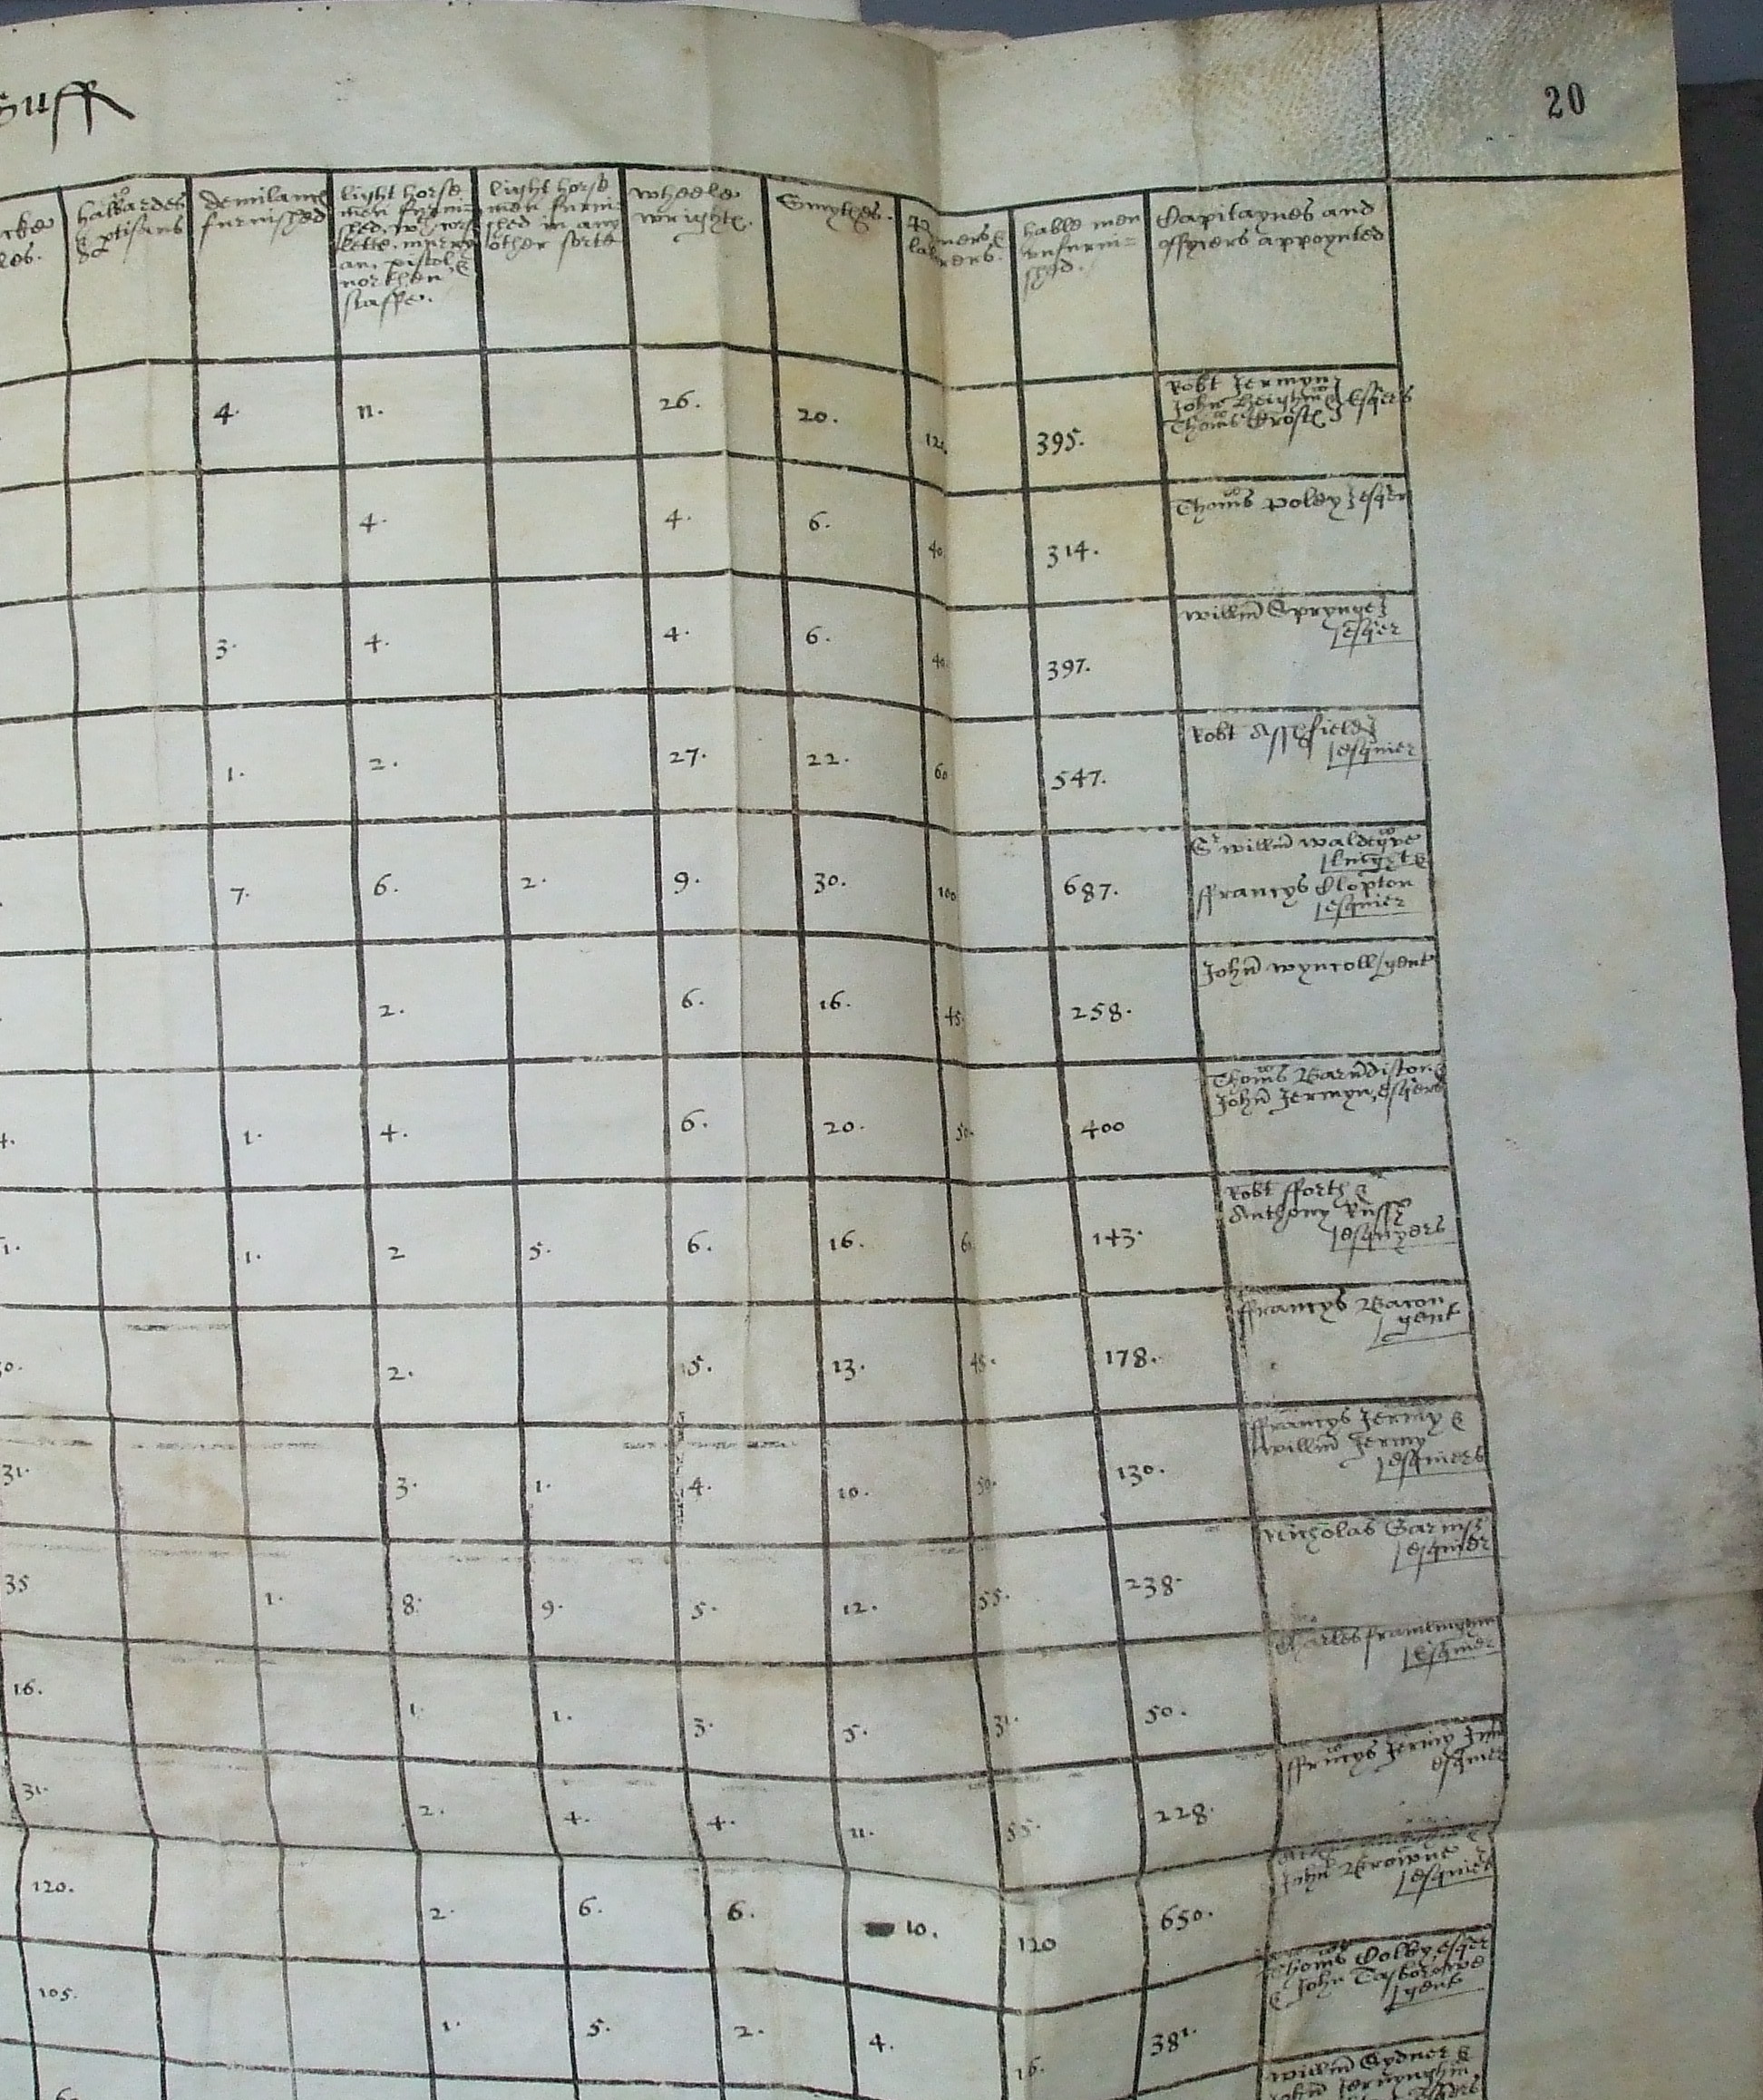 Suff
20
halbardes
& ptisans
demilanc
furnisshed
light horse
men furni=
shed
an pistol &
northen
staffe.
light horse
men furni
shed in any
other sorte
wheele
wrights.
Smythes.
hable men
unfurni=
shed.
Capitaynes and
offycers appoynted
4. 11. 26. 20. 395.
Robt Jermyn
John Heighm & Esqers
Thoms
4. 4. 6. 40. 314.
Thoms Poley esqer
3. 4. 4. 6. 40. 397.
Willm Sprynge
esqer
1. 2. 27. 22. 60 547.
Robt Asshfield
esquier
7. 6. 2. 9. 30. 100 687.
Sr Willm Waldegve
knyght &
ffrancys Clopton
esquier
2. 6. 16. 45. 258.
John Wyncoll gent
4. 1. 4. 6. 20. 50. 400
Thoms Barndiston &
John Jermyn, esqers
1. 1. 2 5. 6. 16. 143.
Robt fforth &
Anthony Russh
esquyers
2. 5. 13. 48. 178.
ffrancys Bacon
gent
31. 3. 1. 4. 10. 50. 130.
ffrancys Jermy &
Willm Jermy
esquiers
35 1. 8. 9. 5. 12. 55. 238.
Nicholas Garnish
esquier
16. 1. 1. 3. 5. 31. 50.
Charles framlinghm
esquier
31. 2. 4. 4. 11. 55. 228.
ffrancys Jermy
esquier
120. 2. 6. 6. 10. 120 650.
John Browne
esquiers
105. 1. 5. 2. 4. 16. 381.
Thoms Colby, esqer
& John Tasborowe
gent
Willm Sydnor &
John Jernynghm